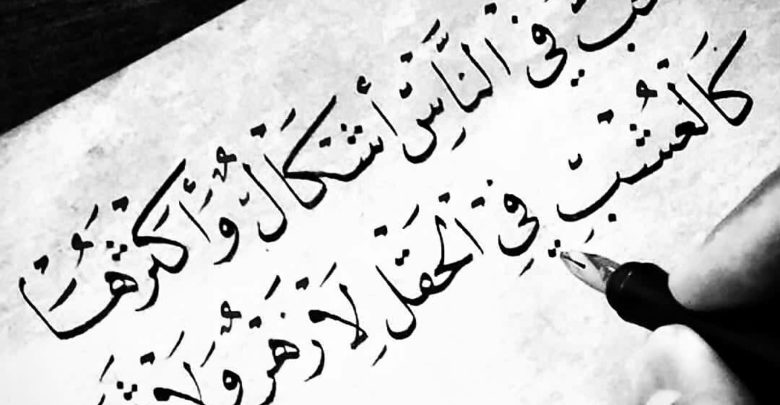 في النَّاسِ أشْكَالٌ وَأكْثَرُهَا
كَالْعُشْبِ فِي الْحَقْلِ لَا زَهْرٌ وَلَا